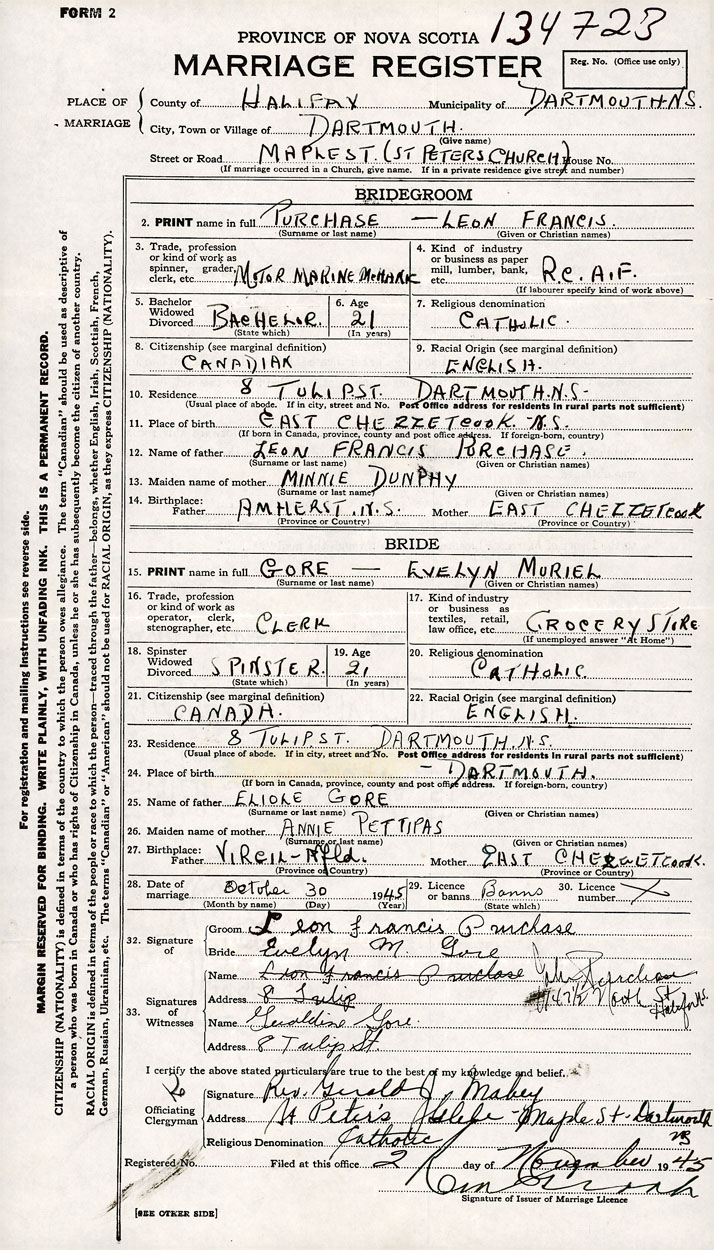 FORM 2
PROVINCE OF NOVA SCOTIA 134723
MARRIAGE REGISTER
Reg. No. (Office use only)
PLACE OF MARRIAGE
County of HALIFAX Municipality of DARTMOUTH N.S.
City, Town or Village of DARTMOUTH.
(Give name)
Street or Road MAPLE ST. (ST PETERS CHURCH) House No.
(If marriage occurred in a Church, give name. If in a private residence give street and number)
BRIDEGROOM
2. PRINT name in full PURCHASE — LEON FRANCIS.
(Surname or last name) (Given or Christian names)
3. Trade, profession or kind of work as spinner, grader, clerk, etc. MOTOR MARINE
4. Kind of industry or business as paper mill, lumber, bank, etc. R.C.A.F.
(If labourer specify kind of work above)
5. Bachelor Widowed Divorced BACHELOR. (State which)
6. Age 21 (In years)
7. Religious denomination CATHOLIC.
8. Citizenship (see marginal definition) CANADIAN
9. Racial Origin (see marginal definition) ENGLISH.
10. Residence 8 TULIP ST. DARTMOUTH N.S-
(Usual place of abode. If in city, street and No. Post Office address for residents in rural parts not sufficient)
11. Place of birth EAST CHEZZETCOOK N.S.
(If born in Canada, province, county and post office address. If foreign-born, country)
12. Name of father LEON FRANCIS PURCHASE.
(Surname or last name) (Given or Christian names)
13. Maiden name of mother MINNIE DUNPHY
(Surname or last name) (Given or Christian names)
14. Birthplace: Father AMHERST. N.S. Mother EAST CHEZZETCOOK
(Province or Country) (Province or Country)
BRIDE
15. PRINT name in full GORE — EVELYN MURIEL
(Surname or last name) (Given or Christian names)
16. Trade, profession or kind of work as operator, clerk, stenographer, etc. CLERK
17. Kind of industry or business as textiles, retail, law office, etc. GROCERY STORE
(If unemployed answer "At Home")
18. Spinster Widowed Divorced SPINSTER. (State which)
19. Age 21 (In years)
20. Religious denomination CATHOLIC.
21. Citizenship (see marginal definition) CANADA.
22. Racial Origin (see marginal definition) ENGLISH.
23. Residence 8 TULIP ST. DARTMOUTH. N.S.
(Usual place of abode. If in city, street and No. Post Office address for residents in rural parts not sufficient)
24. Place of birth - DARTMOUTH.
(If born in Canada, province, county and post office address. If foreign-born, country)
25. Name of father GORE
(Surname or last name) (Given or Christian names)
26. Maiden name of mother ANNIE PETTIPAS
(Surname or last name) (Given or Christian names)
27. Birthplace: Father Nfld. Mother EAST
(Province or Country) (Province or Country)
28. Date of marriage October 30 1945
(Month by name) (Day) (Year)
29. Licence or banns Banns (State which)
30. Licence number X
32. Signature of
Groom Leon Francis Purchase
Bride Evelyn M. Gore
33. Signatures of Witnesses
Name Leon Francis Purchase John Purchase
Address 8 Tulip North St Halifax
Name Geraldine Gore.
Address 8 Tulip St.
I certify the above stated particulars are true to the best of my knowledge and belief.
Officiating Clergyman
Signature Rev. Gerald J. Mahey
Address St Peter's Glebe - Maple St - Dartmouth NS
Religious Denomination Catholic
Registered No. Filed at this office 2 day of November 1945
Signature of Issuer of Marriage Licence
[SEE OTHER SIDE]
For registration and mailing instructions see reverse side.
MARGIN RESERVED FOR BINDING. WRITE PLAINLY, WITH UNFADING INK. THIS IS A PERMANENT RECORD.
CITIZENSHIP (NATIONALITY) is defined in terms of the country to which the person owes allegiance. The term "Canadian" should be used as descriptive of
a person who was born in Canada or who has rights of Citizenship in Canada, unless he or she has subsequently become the citizen of another country.
RACIAL ORIGIN is defined in terms of the people or race to which the person—traced through the father—belongs, whether English, Irish, Scottish, French,
German, Russian, Ukrainian, etc. The terms "Canadian" or "American" should not be used for RACIAL ORIGIN, as they express CITIZENSHIP (NATIONALITY).